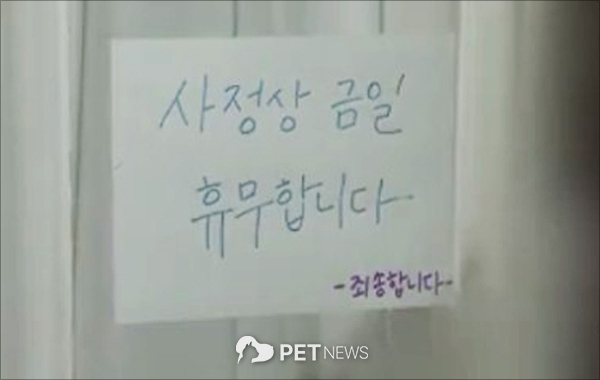 사정상 금일
휴무합니다
-죄송합니다-
PETNEWS